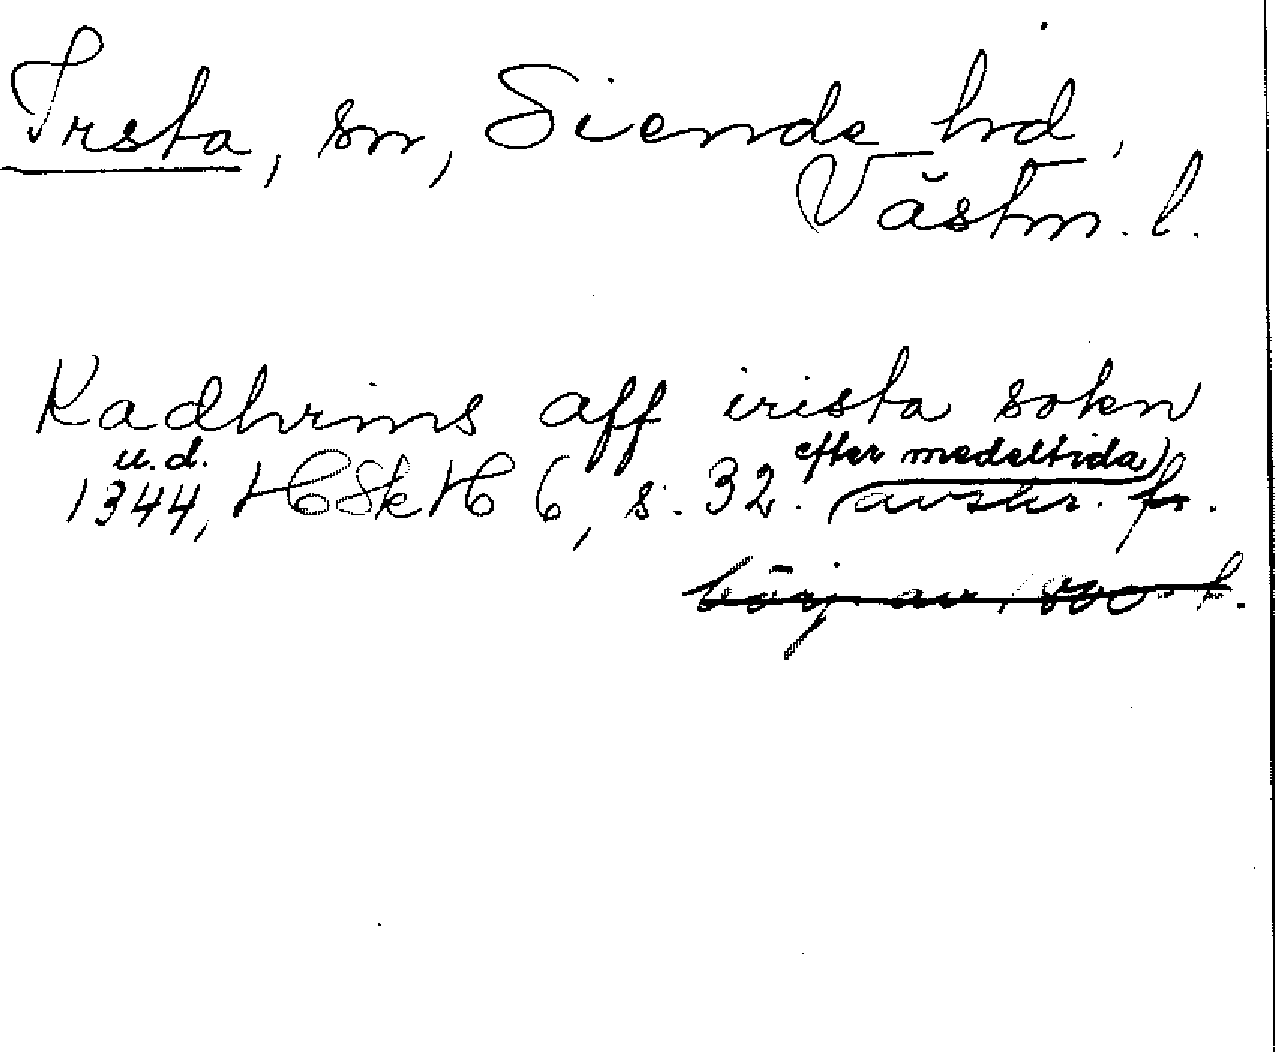 Irsta, sn, Siende hd,
Västm. l.
Kadhrins aff irista sokn
u.d. efter medeltida)
1344, HSkH 6, s. 32. (avskr. fr.
börj. av 1800-t.